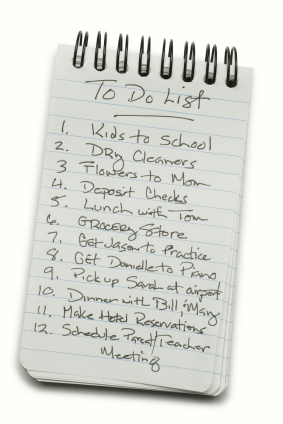 To Do List
1. Kids to School
2. Dry Cleaners
3 Flowers to Mom
4. Deposit Checks
5. Lunch with Tom
6. Grocery Store
7. Get Jason to Practice
8. Get Danielle to Piano
9. Pick up Sarah at airport
10. Dinner with Bill, Mary
11. Make Hotel Reservations
12. Schedule Parent/Teacher
Meeting